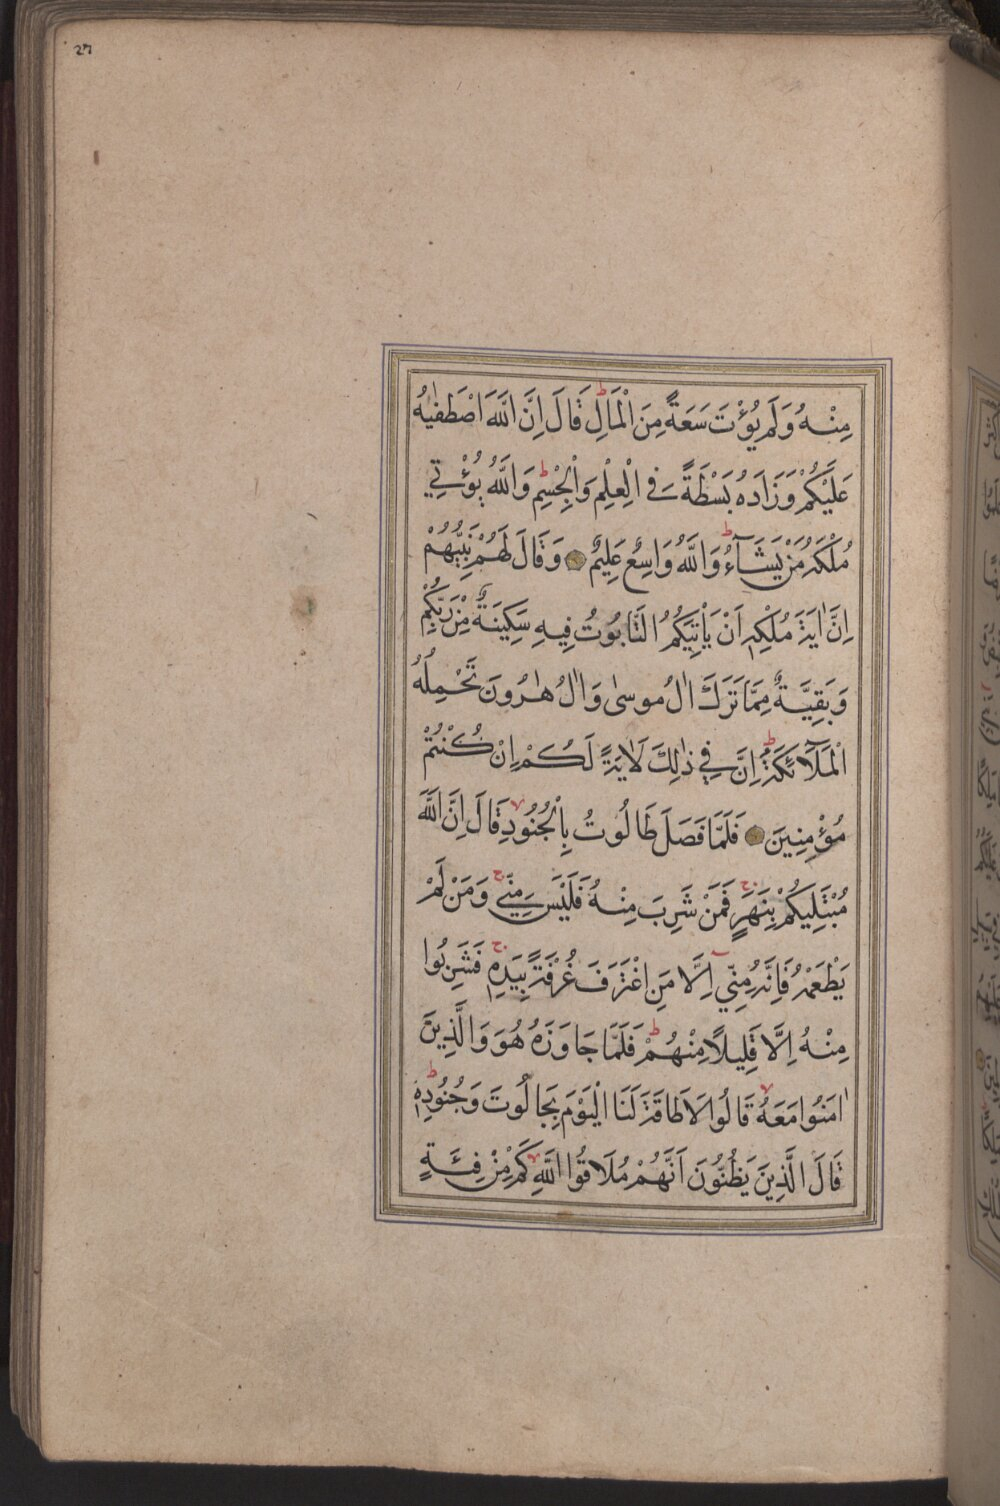 27
مِنْهُ وَلَمْ يُؤْتَ سَعَةً مِنَ الْمَالِ ط قَالَ اِنَّ اللّٰهَ اصْطَفٰيهُ
عَلَيْكُمْ وَزَادَهُ بَسْطَةً فِي الْعِلْمِ وَالْجِسْمِ ط وَاللّٰهُ يُؤْتِي
مُلْكَهُ مَنْ يَشَآءُ ط وَاللّٰهُ وَاسِعٌ عَلِيمٌ وَقَالَ لَهُمْ نَبِيُّهُمْ
اِنَّ اٰيَةَ مُلْكِهِ اَنْ يَأْتِيَكُمُ التَّابُوتُ فِيهِ سَكِينَةٌ مِنْ رَبِّكُمْ
وَبَقِيَّةٌ مِمَّا تَرَكَ اٰلُ مُوسٰى وَاٰلُ هٰرُونَ تَحْمِلُهُ
الْمَلَآئِكَةُ ط اِنَّ فِي ذٰلِكَ لَاٰيَةً لَكُمْ اِنْ كُنْتُمْ
مُؤْمِنِينَ فَلَمَّا فَصَلَ طَالُوتُ بِالْجُنُودِ لا قَالَ اِنَّ اللّٰهَ
مُبْتَلِيكُمْ بِنَهَرٍ ج فَمَنْ شَرِبَ مِنْهُ فَلَيْسَ مِنِّي ج وَمَنْ لَمْ
يَطْعَمْهُ فَاِنَّهُ مِنِّي اِلَّا مَنِ اغْتَرَفَ غُرْفَةً بِيَدِهِ ج فَشَرِبُوا
مِنْهُ اِلَّا قَلِيلًا مِنْهُمْ ط فَلَمَّا جَاوَزَهُ هُوَ وَالَّذِينَ
اٰمَنُوا مَعَهُ لا قَالُوا لَا طَاقَةَ لَنَا الْيَوْمَ بِجَالُوتَ وَجُنُودِهِ ط
قَالَ الَّذِينَ يَظُنُّونَ اَنَّهُمْ مُلَاقُوا اللّٰهِ لا كَمْ مِنْ فِئَةٍ